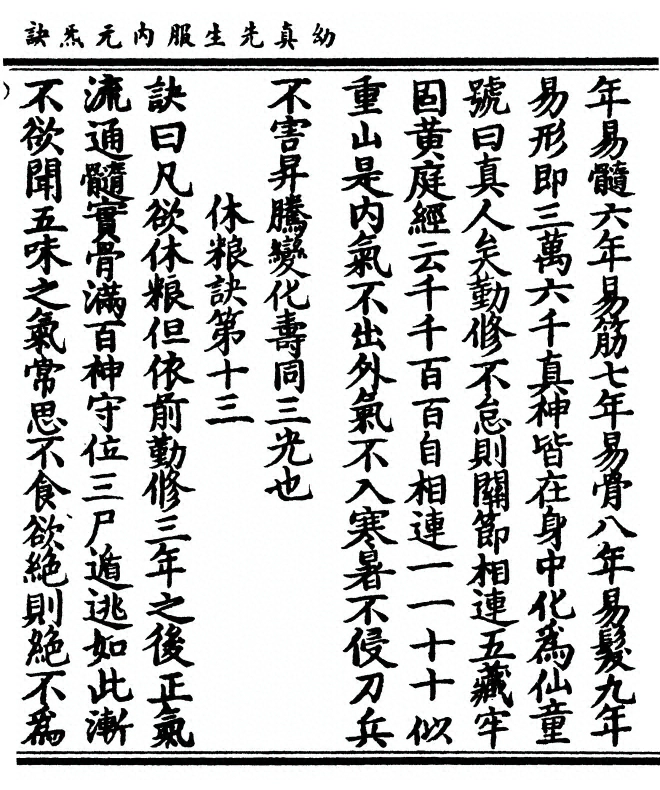 幼真先生服内元炁訣
年易髓六年易筋七年易骨八年易髮九年
易形即三萬六千真神皆在身中化為仙童
號曰真人矣勤修不怠則關節相連五藏牢
固黄庭經云千千百百自相連一一十十似
重山是内氣不出外氣不入寒暑不侵刀兵
不害昇騰變化壽同三光也
休粮訣第十三
訣曰凡欲休粮但依前勤修三年之後正氣
流通髓實骨滿百神守位三尸遁逃如此漸
不欲聞五味之氣常思不食欲絶則絶不為